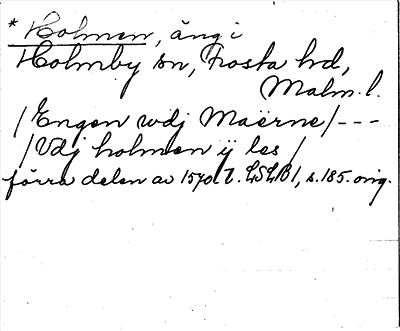 * Holmen, äng i
Holmby sn, Frosta hd,
Malm. l.
/Engen wdj Maërne/---
/Vdj holmen ij les/
förra delen av 1570.t. LSLB1, s. 185. orig.